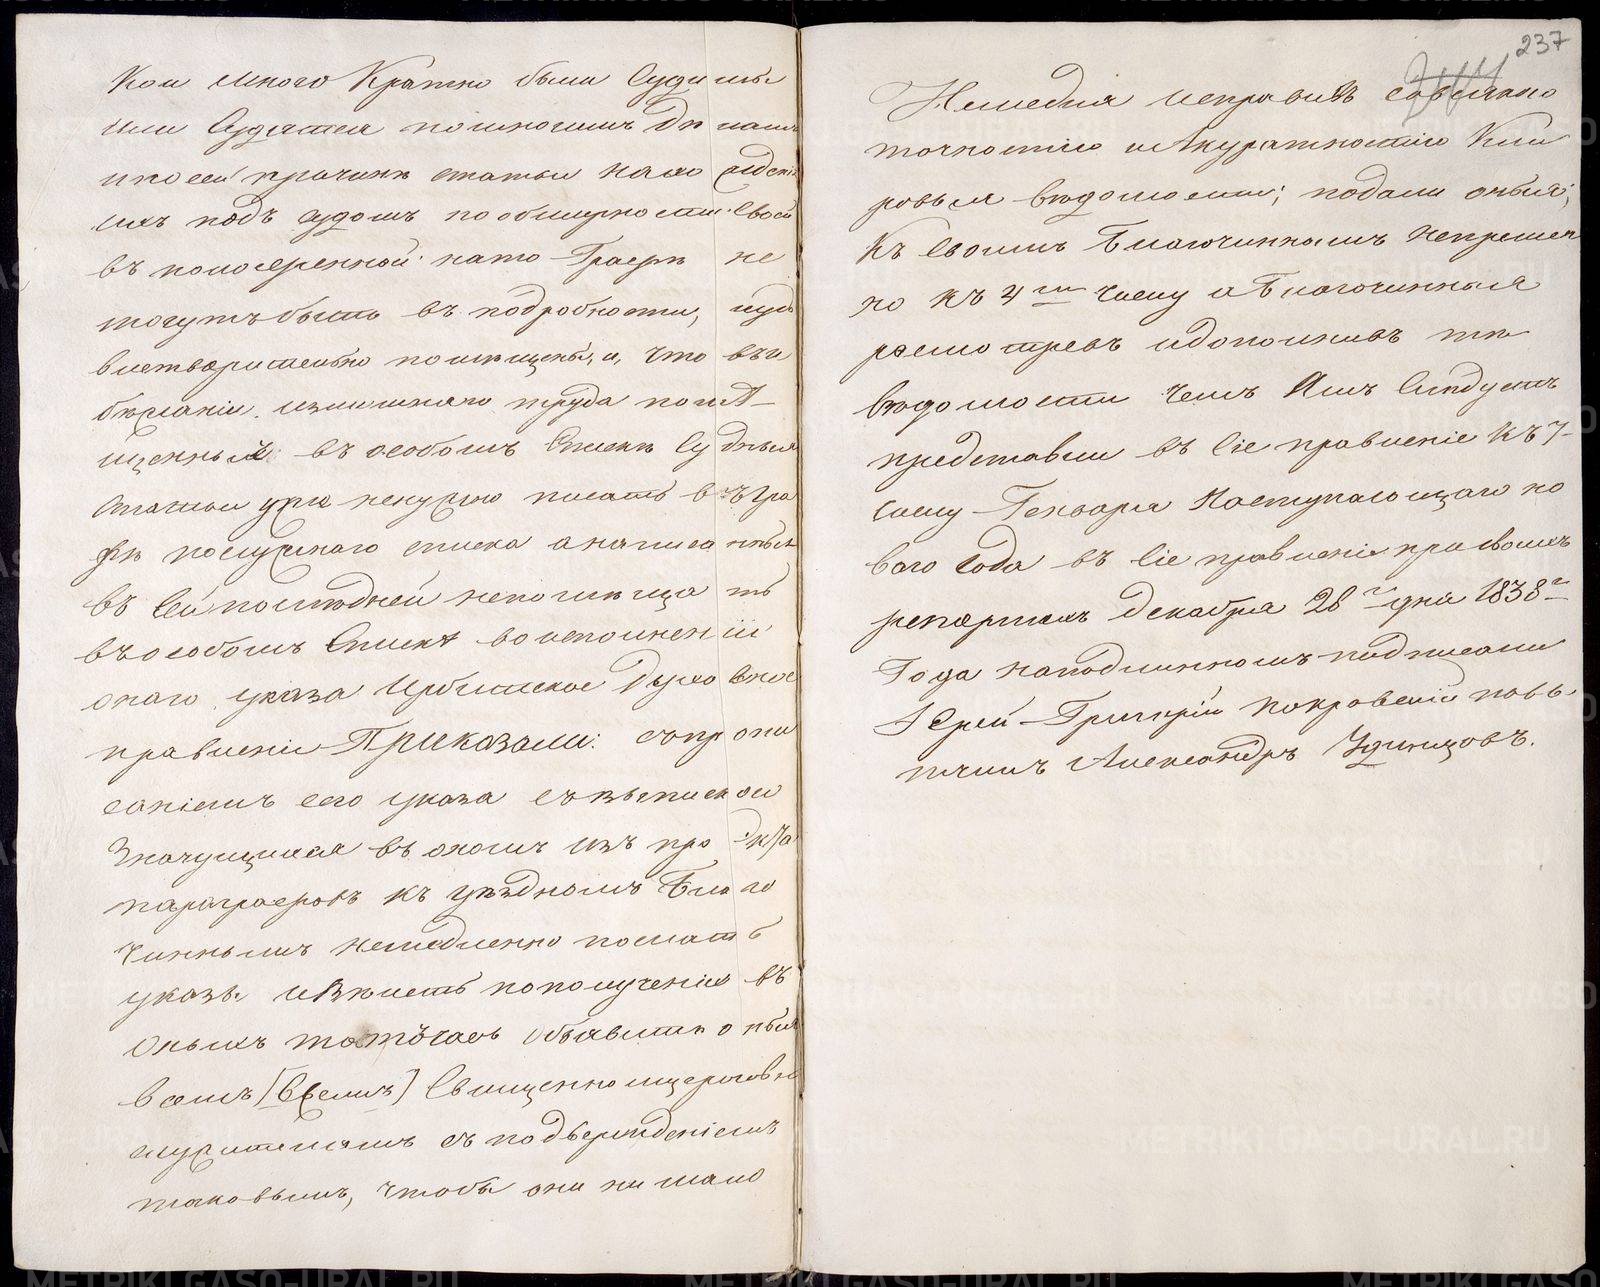 кои много Кратно были Судимы
или Судятся по многимъ Дѣ ламъ
и по сей причинѣ статьи на хо дя
ихъ подъ судомъ по обширности своей
въ послѣ на то Графѣ не
могутъ быть въ подробности, и удо
влетворительно помѣщены, и, что въ и
бѣжаніи излишняго труда помѣ
щенныя въ особомъ Спискѣ Су дныя
статьи уже ненужно писать в ъ гра
фѣ послужнаго списка а написа нныя
въ сей послѣдней непомѣща ть
въ особомъ Спискѣ во исполнен іи
онаго указа Ирбитское Духо вное
правленіе Приказали: съ пр опи
саніемъ сего указа съ выписк ою
значущихся въ ономъ изъ про
параграфовъ къ уѣзднымъ Бла го
чиннымъ немедленно послат ь
указы и велѣть по полученіи въ
оныхъ тотъ часъ объявить о ныя
всемъ [всемъ] Священно церковно
служителямъ съ подтвержденіемъ
таковымъ, чтобы они ни мало
237
Немедля исправивъ со всякою
точностію и Акуратностію Кли
ровыя вѣдомости; подали оныя;
къ своимъ Благочиннымъ непремен
но къ 4му числу а Благочинныя
разсмотревъ и дополнивъ тѣ
вѣдомости чемъ Имъ Слѣдуетъ
представили въ Сіе правленіе къ 7
числу Генваря Наступающаго но
ваго года въ Сіе правленіе при своихъ
репортахъ Декабря 28го дня 1838го
Года на подлинномъ подписали
Іерей Григорій Покровскій повы
тчикъ Александръ Удинцовъ.
METRIKI.GASO-URAL.RU